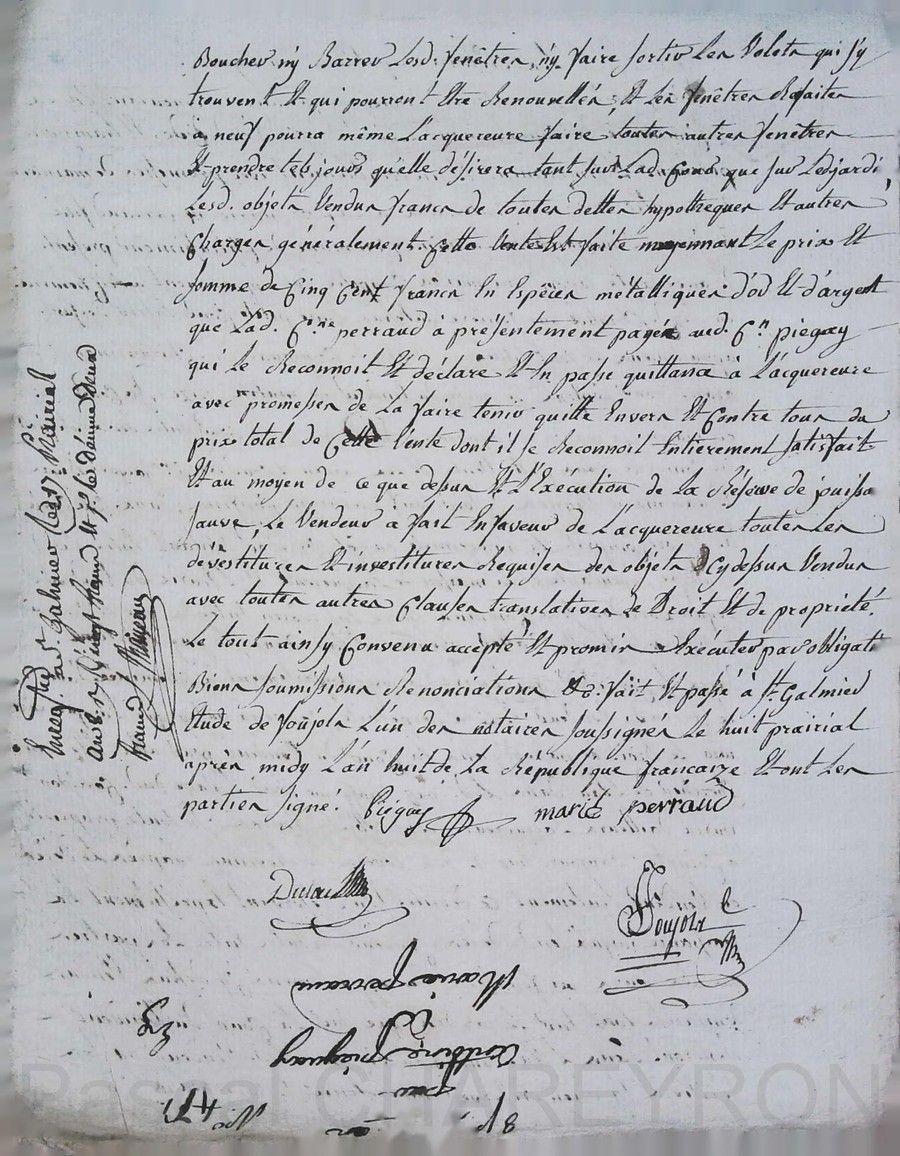 Boucher n'y Barrer Lesd. fenêtres, n'y faire sortir Les Volets qui s'y
trouvent Et qui pourront Etre Renouvellés, Et Les fenêtres Refaites
à neuf pourra même L'acquereure faire toutes autres fenetres
Et prendre tels jours qu'elle désirera tant sur Lad. Cour que sur Lesd jardi
Lesd. objets Vendus francs de toutes dettes hypotheques Et autres
Charges généralement. Cette Vente Est faite moyennant Le prix Et
somme de Cinq Cent francs En Espèces métalliques d'or Et d'argent
que Lad. C.ne perraud à présentement payée aud. C.n piegay
qui Le Reconnoit Et déclare Et En passe quittance à L'acquereure
avec promesses de La faire tenir quitte Envers Et Contre tous du
prix total de Cette Vente dont il se Reconnoit Entierement satisfait
Et au moyen de ce que dessus Et L'Exécution de La Réserve de puissa
sauve, Le Vendeur à fait En faveur de L'acquereure toutes Les
dévestitures Et investitures Requises des objets Cy dessus Vendus
avec toutes autres Clauses translatives de Droit Et de propriété.
Le tout ainsy Convenu accépté Et promis Exécuter par obligati
Biens soumissions Renonciations &c. fait Et passé à St. Galmier
Etude de foujols L'un des notaires soussignés Le huit prairial
après midy L'an huit de La République françaize Et ont Les
parties signé.
Piégay
marie perraud
foujols
Marie perraud
18